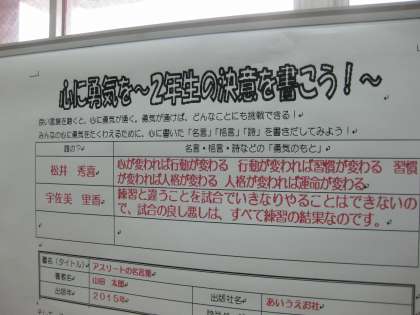 心に勇気を～2年生の決意を書こう！～
良い言葉を聴くと、心に勇気が湧く。勇気が湧けば、どんなことにも挑戦できる！
みんなの心に勇気をたくわえるために、心に書いた「名言」「格言」「詩」を書きだしてみよう！
誰の？ 名言・格言・詩などの「勇気のもと」
松井　秀喜 心が変われば行動が変わる　行動が変われば習慣が変わる　習慣
が変われば人格が変わる　人格が変われば運命が変わる
宇佐美　里香 練習と違うことを試合でいきなりやることはできないの
で、試合の良し悪しは、すべて練習の結果なのです。
書名（タイトル） アスリートの名言集
著者名 山田　太郎
出版年 2015年 出版社名 あいうえお社